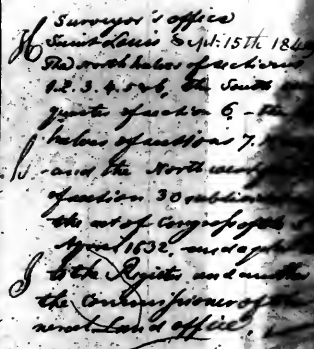 Surveyor's office
Saint Louis Sept: 15th 184
The north halves of sections
1. 2. 3. 4. 5 & 6, the South
quarter of section 6 - the
halves of sections 7.
and the North
of section 30
the act of Congress of the
April 1832, and a
to the Register and another
the Commissioner of
neral Land office,